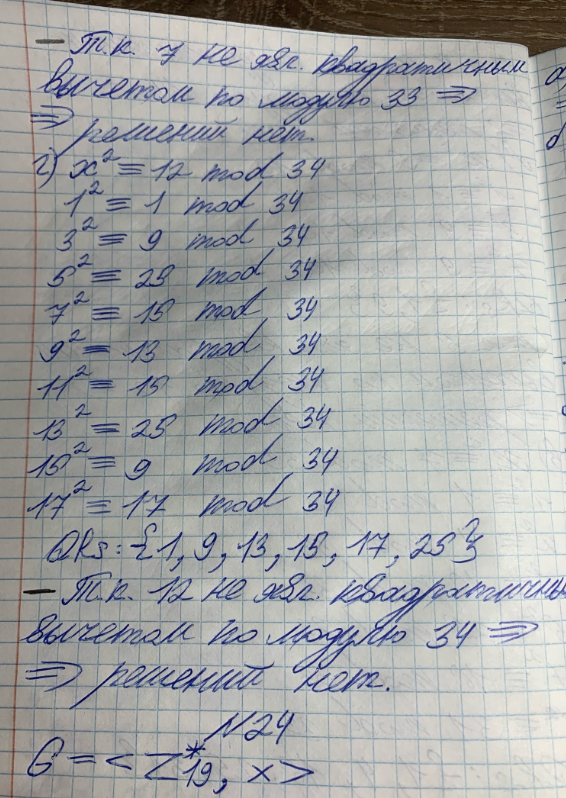 — Т.к. 7 не явл. квадратичным
вычетом по модулю 33 ⇒
⇒ решений нет.
г) x² ≡ 12 mod 34
1² ≡ 1 mod 34
3² ≡ 9 mod 34
5² ≡ 25 mod 34
7² ≡ 15 mod 34
9² ≡ 13 mod 34
11² ≡ 15 mod 34
13² ≡ 25 mod 34
15² ≡ 9 mod 34
17² ≡ 17 mod 34
QRs: {1, 9, 13, 15, 17, 25}
— Т.к. 12 не явл. квадратичным
вычетом по модулю 34 ⇒
⇒ решений нет.
N24
G = < Z*19, × >